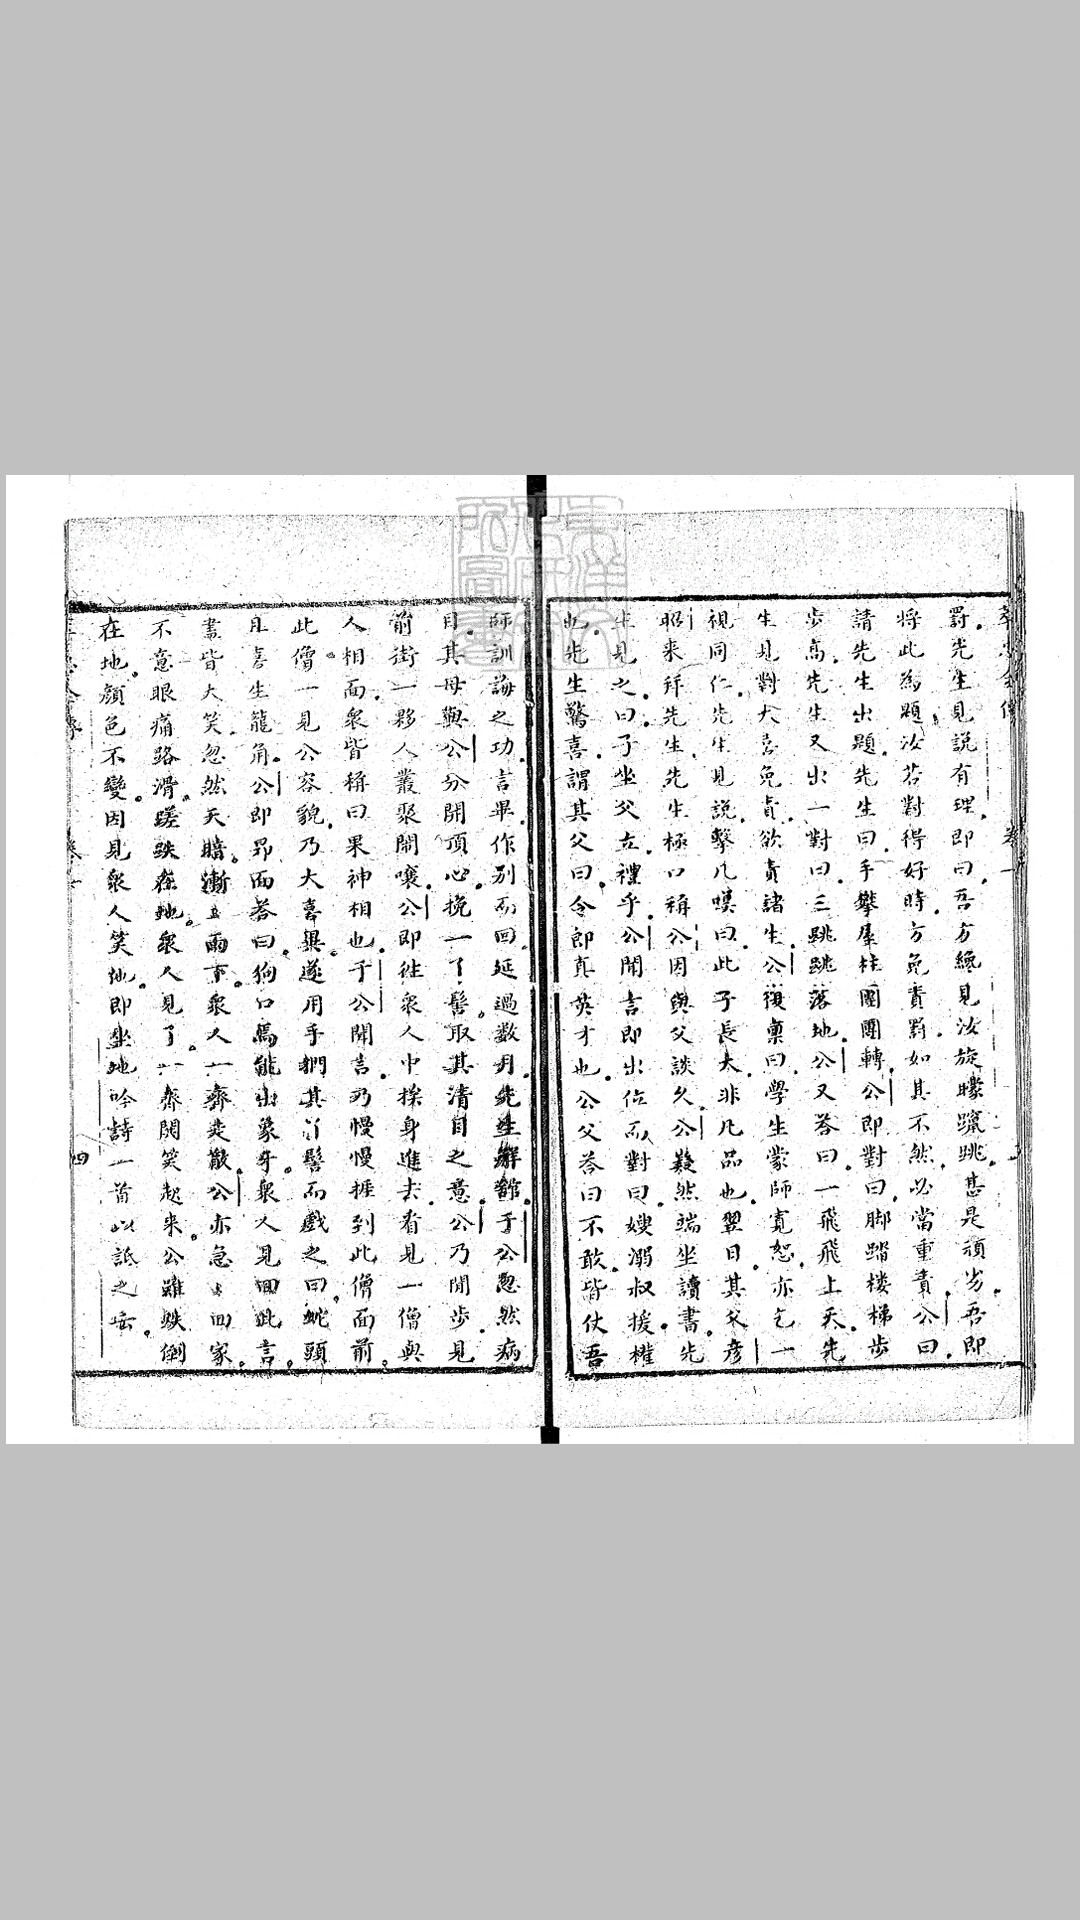 罰先生見說有理即曰吾方纔見汝旋矇躐跳甚是頑劣吾即
將此為題汝若對得好時方免責罰如其不然必當重責公曰
請先生出題先生曰手攀犀柱團團轉公即對曰脚踏楼梯步
步高先生又出一對曰三跳跳落地公又答曰一飛飛上天先
生見對大喜免責欲責諸生公復禀曰學生蒙師寬恕亦乞一
視同仁先生見說擊几嘆曰此子長大非凡品也翌日其父彦
昭来拜先生先生極口稱公因與父談久公凝然端坐讀書先
生見之曰子坐父立禮乎公聞言即出位而對曰嫂溺叔援權
也先生驚喜謂其父曰令郎真英才也公父答曰不敢皆仗吾
師訓誨之功言畢作别而回延過数月先生解館于公忽然病
目其母與公分開頂心挽一丫髻取其清目之意公乃閒步見
前街一夥人叢聚閙嚷公即往衆人中探身進去看見一僧與
人相面衆皆稱曰果神相也于公聞言乃慢慢捱到此僧面前
此僧一見公容貌乃大喜畢遂用手捫其丫髻而戲之曰蛇頭
且喜生龍角公即昂面答曰狗口焉能出象牙衆人見回此言
盡皆大笑忽然天暗漸漸雨下衆人一齊走散公亦急急回家
不意眼痛路滑蹉跌在地衆人見了一齊鬨笑起来公雖跌倒
在地顔色不變因見衆人笑他即坐地吟詩一首以詆之云
卷一
四